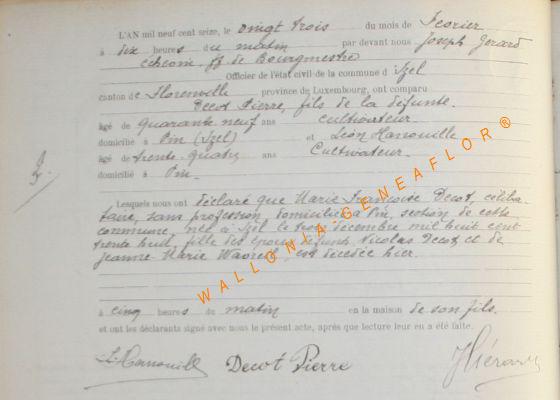 L'AN mil neuf cent seize, le vingt trois du mois de Fevrier
à dix heures du matin par devant nous Joseph Gerard
échevin ff de Bourgmestre
Officier de l'état civil de la commune d'Izel
canton de Florenville province de Luxembourg, ont comparu
Decot Pierre, fils de la défunte.
âgé de quarante neuf ans cultivateur.
domicilié à Pin (Izel) et Léon Hanouille
âgé de trente quatre ans Cultivateur.
domicilié à Pin.
2.
Lesquels nous ont déclaré que Marie Françoise Decot, céliba
taire, sans profession, domiciliée à Pin, section de cette
commune, née à Izel le trois décembre mil huit cent
trente huit, fille des époux défunts Nicolas Decot et de
Jeanne Marie est décédée hier.
à cinq heures du matin en la maison de son fils.
et ont les déclarants signé avec nous le présent acte, après que lecture leur en a été faite.
L. Hanouille Decot Pierre JGérard
WALLONIA-GENEAFLOR®